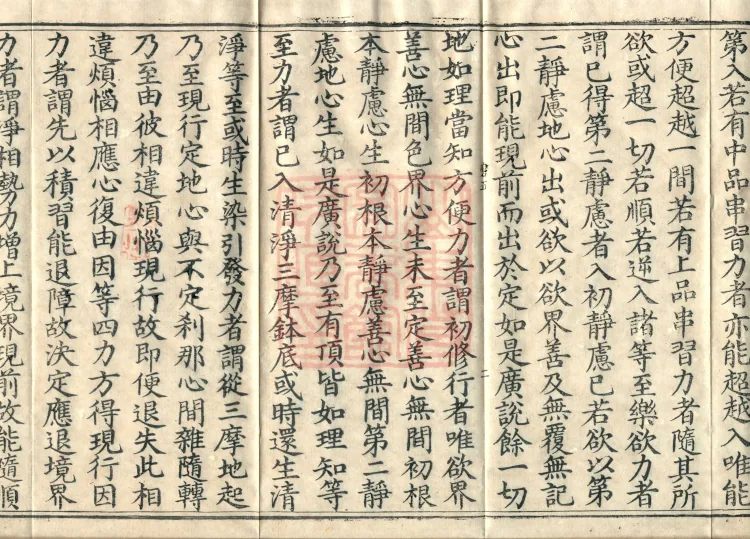 第入若有中品串習力者亦能超越入唯能
方便超越一間若有上品串習力者隨其所
欲或超一切若順若逆入諸等至樂欲力者
謂已得第二靜慮者入初靜慮已若欲以第
二靜慮地心出或欲以欲界善及無覆無記
心出即能現前而出於定如是廣說餘一切
地如理當知方便力者謂初修行者唯欲界
善心無間色界心生未至定善心無間初根
本靜慮心生初根本靜慮善心無間第二靜
慮地心生如是廣說乃至有頂皆如理知等
至力者謂已入清淨三摩鉢底或時還生清
淨等至或時生染引發力者謂從三摩地起
乃至現行定地心與不定剎那心間雜隨轉
乃至由彼相違煩惱現行故即便退失此相
違煩惱相應心復由因等四力方得現行因
力者謂先以積習能退障故決定應退境界
力者謂淨相勢力增上境界現前故能隨順